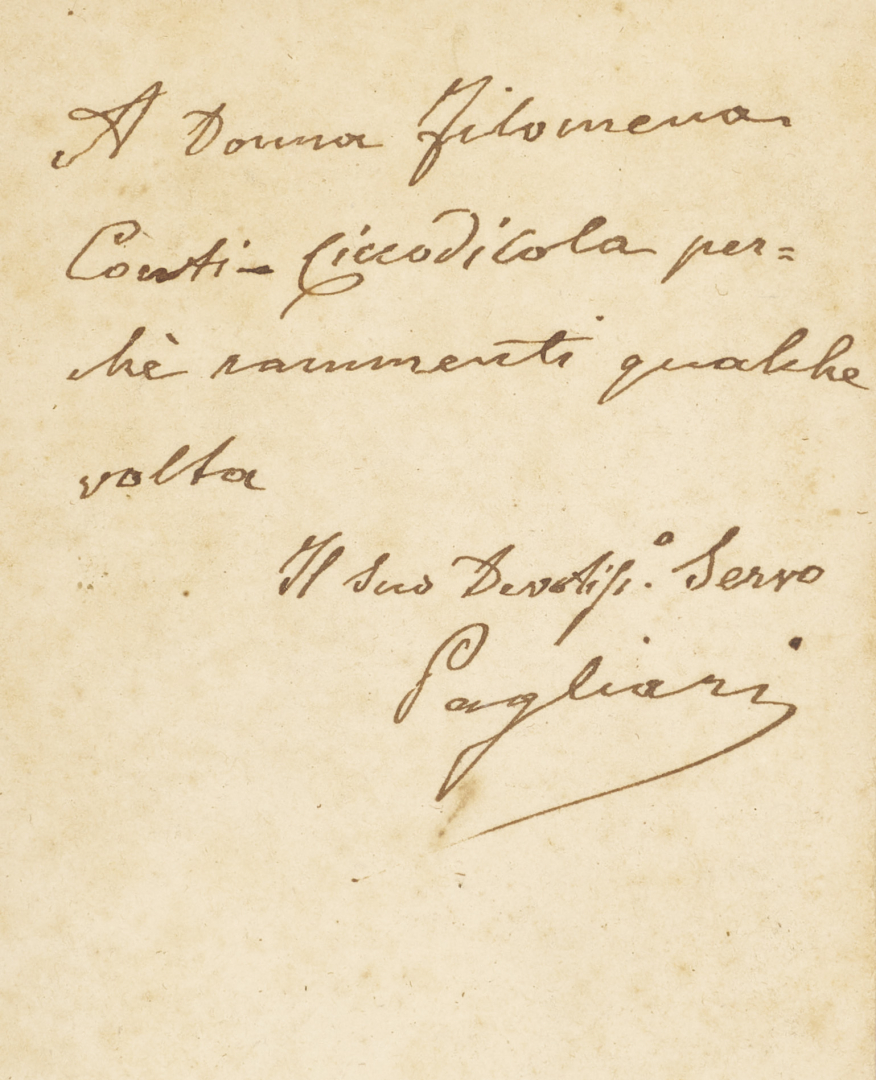 A Donna Filomena
Conti-Ciccodicola per=
chè rammenti qualche
volta
Il suo Devotiss.º Servo
Pagliari